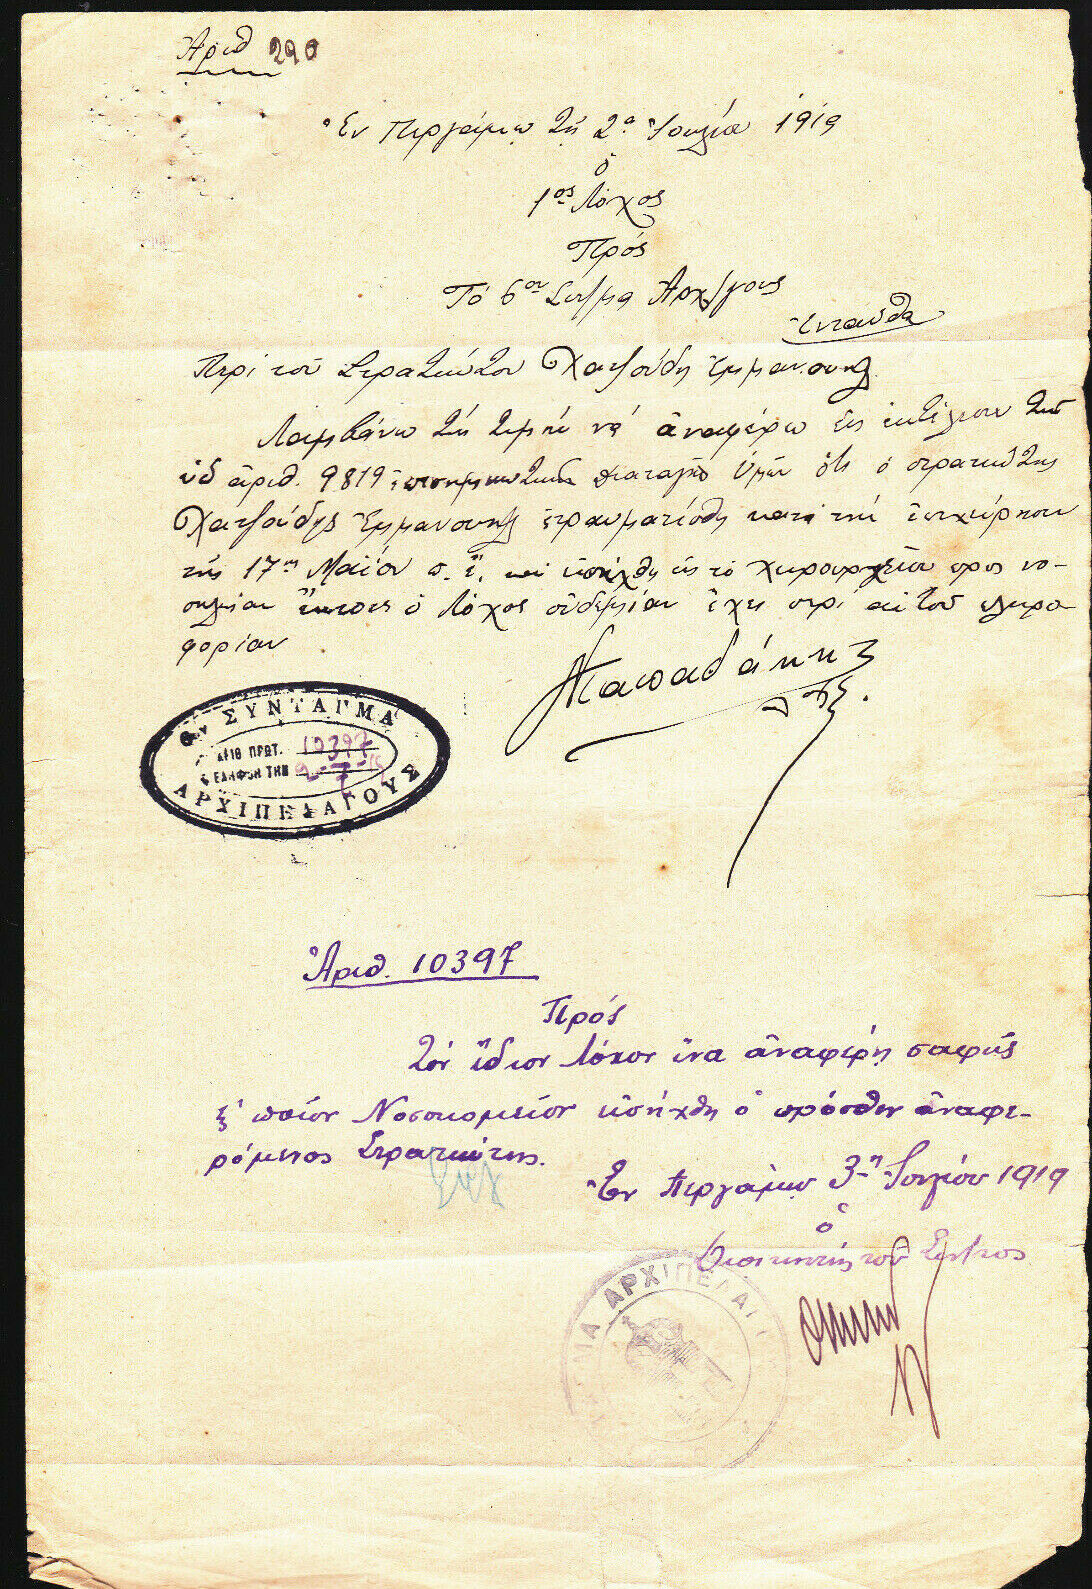 Ἀριθ 290
Ἐν Περγάμῳ τῇ 2ᾳ Ἰουλίου 1919
ὁ
1ος Λόχος
Πρός
Τό 6ον Συν/μα Ἀρχ/γους
Ἐνταῦθα
Περί τοῦ Στρατιώτου Χατζούδη Ἐμμανουήλ
Λαμβάνω τήν τιμήν νά ἀναφέρω εἰς ἐκτέλεσιν τῆς
ὑπ ἀριθ. 9819 διαταγῆς Ὑμῶν ὅτι ὁ στρατιώτης
Χατζούδης Ἐμμανουήλ ἐτραυματίσθη κατά τήν ἐπιχείρησιν
τῆς 17ης Μαΐου π. ἔ. καί εἰσήχθη εἰς τό χειρουργεῖον πρός νο-
σηλείαν ὁ Λόχος οὐδεμίαν ἔχει περί αὐτοῦ πληρο
φορίαν
Παπαδάκης
6ον ΣΥΝΤΑΓΜΑ
ΑΡΙΘ ΠΡΩΤ. 10397
ΕΛΗΦΘΗ ΤΗΝ 2-7-19
ΑΡΧΙΠΕΛΑΓΟΥΣ
Ἀριθ. 10397
Πρός
Τόν ἴδιον Λόχον ἵνα ἀναφέρῃ σαφῶς
εἰς ποῖον Νοσοκομεῖον εἰσήχθη ὁ πρόσθεν ἀναφε-
ρόμενος Στρατιώτης.
Ἐν Περγάμῳ 3ῃ Ἰουλίου 1919
ὁ
Διοικητής τοῦ Συν/τος
ΜΑ ΑΡΧΙΠΕΛΑΓ